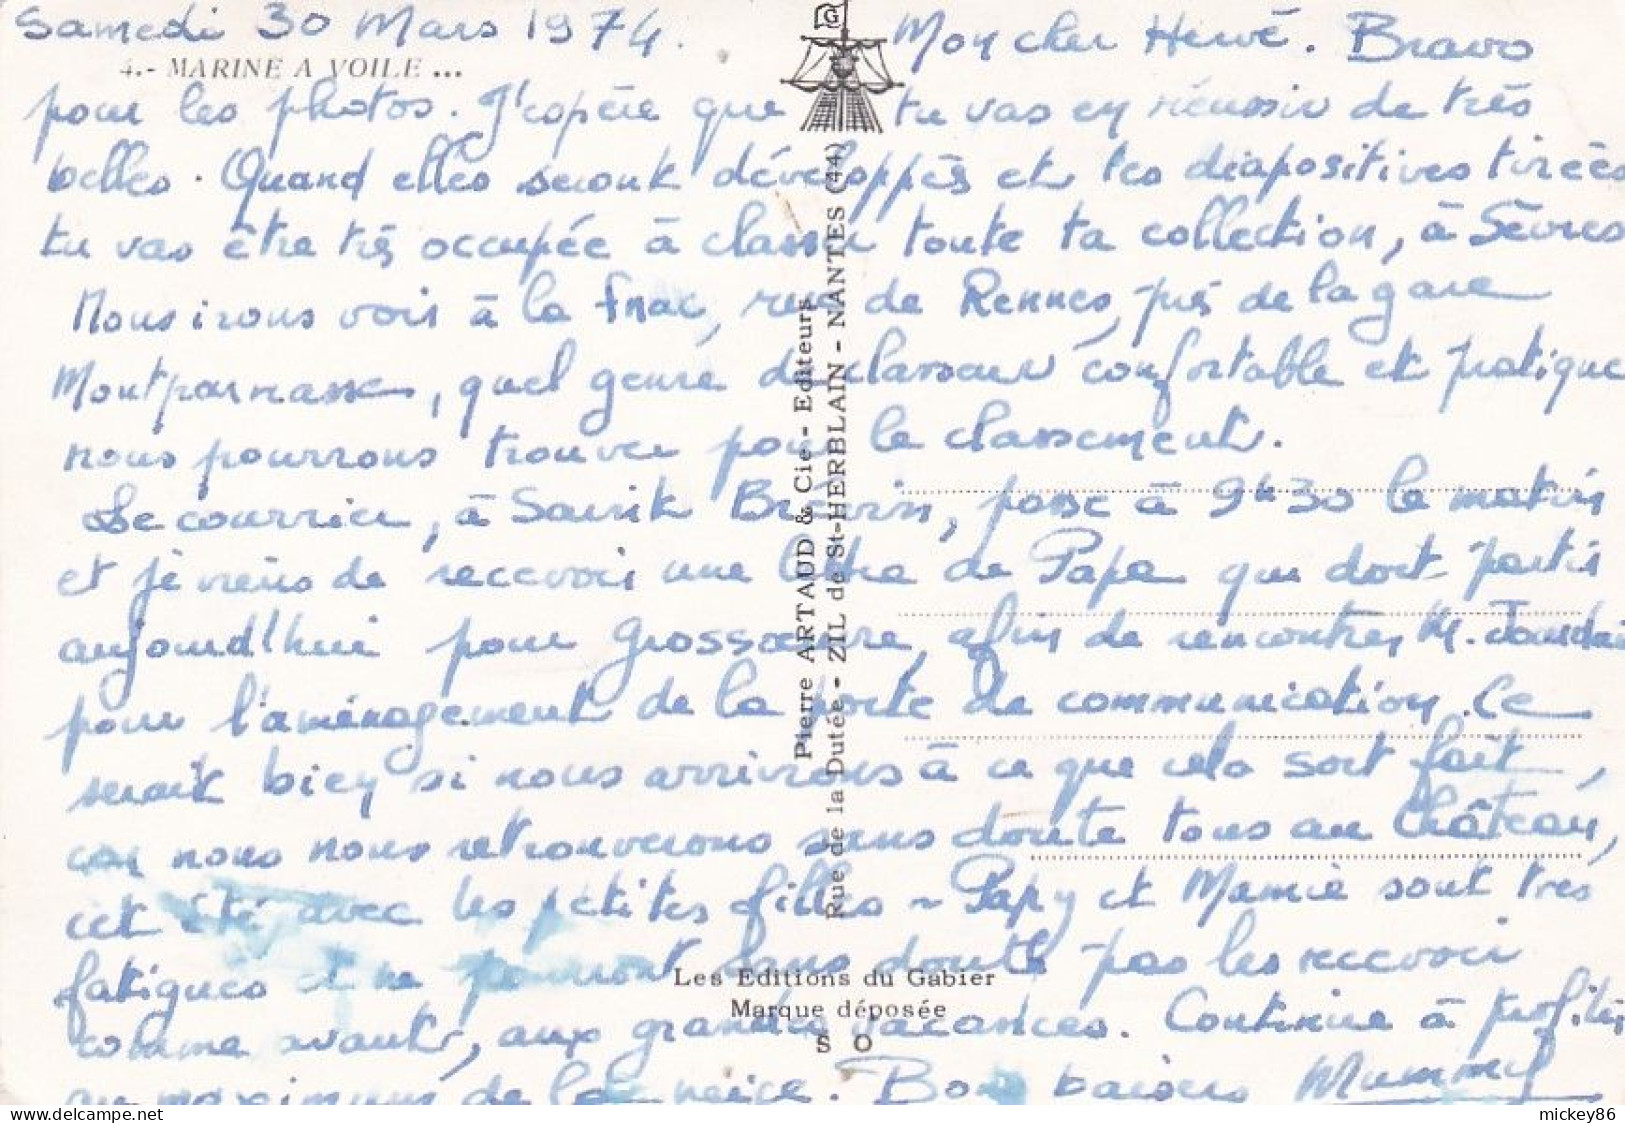 Samedi 30 Mars 1974. Mon cher Hervé. Bravo
4.- MARINE A VOILE ...
G
pour les photos. J'espère que tu vas en réussir de très
belles. Quand elles seront développées et tes diapositives tirées
tu vas être très occupée à classer toute ta collection, à Sèvres
Nous irons voir à la Fnac, rue de Rennes, près de la gare
Montparnasse, quel genre de classeur confortable et pratique
nous pourrons trouver pour le classement.
Le courrier, à Saint Brévin, passe à 9h30 le matin
et je viens de recevoir une lettre de Papa qui doit partir
aujourd'hui pour Grossœuvre, afin de rencontrer M. Jourdain
pour l'aménagement de la porte de communication. Ce
serait bien si nous arrivions à ce que cela soit fait,
car nous nous retrouverons sans doute tous au Château,
cet été avec les petites filles ~ Papy et Mamie sont très
fatigués et ne pourront sans doute pas les recevoir
comme avant, aux grandes vacances. Continue à profiter
au maximum de la neige. Bons baisers Mummy
Pierre ARTAUD & Cie - Editeurs
Rue de la Dutée - ZIL de St-HERBLAIN - NANTES (44)
Les Editions du Gabier
Marque déposée
S O
mickey86